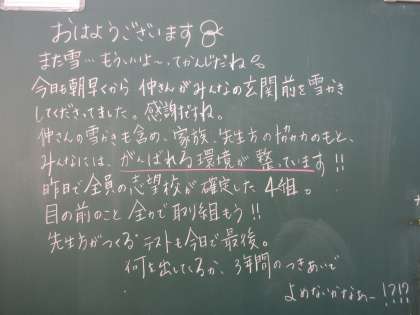 おはようございます
また雪…もういいよ〜、てかんじだね。
今日も朝早くから 仲さんがみんなの玄関前を雪かき
してくださってました。感謝だすね。
仲さんの雪かきも含め、家族、先生方の協力のもと、
みんなには、がんばれる環境が整っています!!
昨日で全員の志望校が確定した4組。
目の前のこと 全力で取り組もう!!
先生方がつくるテストも今日で最後。
何を出してくるか、3年間のつきあいで
よめないかなぁー!?!?